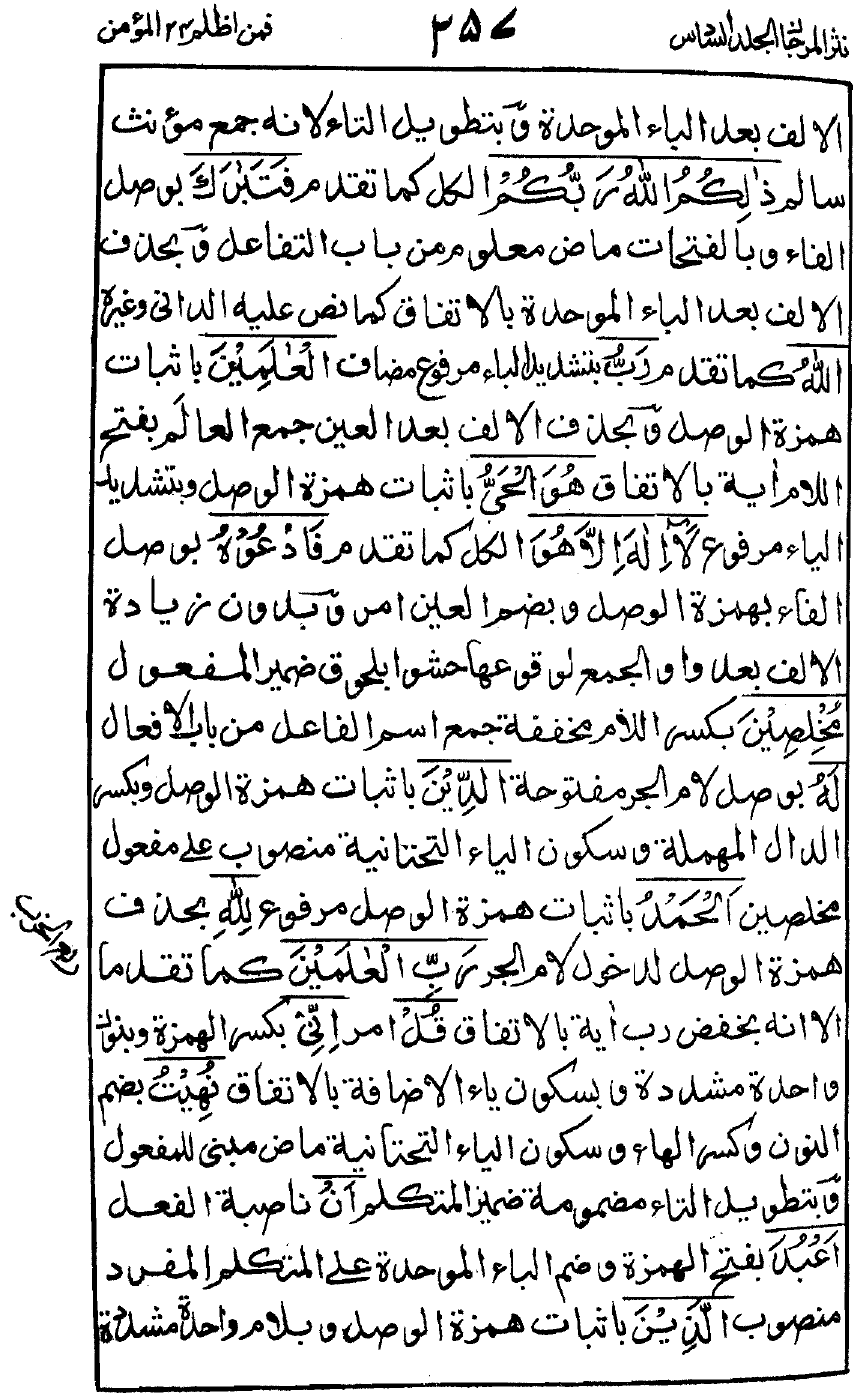 نثر المرجان الجلد السادس ٣٥٧ فمن اظلم ٢٤ المؤمن
الالف بعد الباء الموحدة وَبتطويل التاء لانه جمع مؤنث
سالم ذٰلِكُمُ اللّٰهُ رَبُّكُمْ الكل كما تقدم فَتَبٰرَكَ بوصل
الفاء وبالفتحات ماض معلوم من باب التفاعل وَبحذف
الالف بعد الباء الموحدة بالاتفاق كما نص عليه الدانى وغيره
اللّٰهُ كما تقدم رَبُّ بتشديد الباء مرفوع مضاف الْعٰلَمِيْنَ باثبات
همزة الوصل وَبحذف الالف بعد العين جمع العالَم بفتح
اللام اٰية بالاتفاق هُوَ الْحَيُّ باثبات همزة الوصل وبتشديد
الياء مرفوع لَآ اِلٰهَ اِلَّا هُوَ الكل كما تقدم فَادْعُوْهُ بوصل
الفاء بهمزة الوصل وبضم العين امر وَبدون زيادة
الالف بعد واو الجمع لوقوعها حشوا بلحوق ضمير المفعول
مُخْلِصِيْنَ بكسر اللام مخففة جمع اسم الفاعل من باب الافعال
لَهُ بوصل لام الجر مفتوحة الدِّيْنَ باثبات همزة الوصل وبكسر
الدال المهملة وسكون الياء التحتانية منصوب على مفعول
مخلصين اَلْحَمْدُ باثبات همزة الوصل مرفوع لِلّٰهِ بحذف
همزة الوصل لدخول لام الجر رَبِّ الْعٰلَمِيْنَ كما تقدما
الا انه بخفض رب اٰية بالاتفاق قُلْ امر اِنِّيْ بكسر الهمزة وبنون
واحدة مشددة وبسكون ياء الاضافة بالاتفاق نُهِيْتُ بضم
النون وكسر الهاء وسكون الياء التحتانية ماض مبنى للمفعول
وَبتطويل التاء مضمومة ضمير المتكلم اَنْ ناصبة الفعل
اَعْبُدَ بفتح الهمزة وضم الباء الموحدة على المتكلم المفرد
منصوب الَّذِيْنَ باثبات همزة الوصل وبلام واحدة مشددة
ربع الحزب